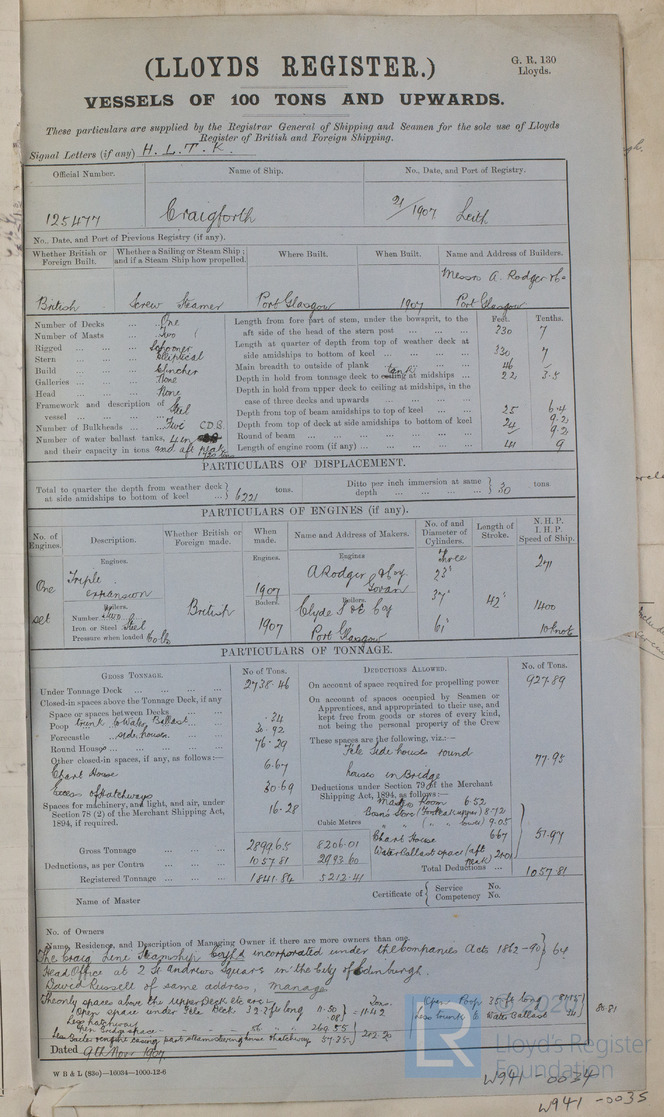 (LLOYDS REGISTER.)
G. R. 130
Lloyds.
VESSELS OF 100 TONS AND UPWARDS.
These particulars are supplied by the Registrar General of Shipping and Seamen for the sole use of Lloyds
Register of British and Foreign Shipping.
Signal Letters (if any) H. L. T. K.
Official Number. Name of Ship. No., Date, and Port of Registry.
125477 Craigforth 21/1907 Leith
No., Date, and Port of Previous Registry (if any).
Whether British or Foreign Built. Whether a Sailing or Steam Ship; and if a Steam Ship how propelled. Where Built. When Built. Name and Address of Builders.
British Screw Steamer Port Glasgow 1907 Messrs A. Rodger & Co Port Glasgow
Number of Decks ... One
Number of Masts ... Two
Rigged ... Schooner
Stern ... Elliptical
Build ... Clincher
Galleries ... None
Head ... None
Framework and description of vessel ... Steel
Number of Bulkheads ... Five C.D.B.
Number of water ballast tanks,
and their capacity in tons and aft
Feet. Tenths.
Length from fore part of stem, under the bowsprit, to the
aft side of the head of the stern post ... 330 7
Length at quarter of depth from top of weather deck at
side amidships to bottom of keel ... 330 7
Main breadth to outside of plank ... 46
Depth in hold from tonnage deck to ceiling tank at midships ... 22 3.5
Depth in hold from upper deck to ceiling at midships, in the
case of three decks and upwards
Depth from top of beam amidships to top of keel ... 25 6.4
Depth from top of deck at side amidships to bottom of keel 24 9.2
Round of beam ... 9.2
Length of engine room (if any) ... 41 9
PARTICULARS OF DISPLACEMENT.
Total to quarter the depth from weather deck at side amidships to bottom of keel ... 6221 tons. Ditto per inch immersion at same depth ... 30 tons
PARTICULARS OF ENGINES (if any).
No. of Engines. Description. Whether British or Foreign made. When made. Name and Address of Makers. No. of and Diameter of Cylinders. Length of Stroke. N. H. P. I. H. P. Speed of Ship.
Engines. Engines. Engines Three
One set Triple expansion 1907 A Rodger & Coy Govan 23" 271
Boilers. British Boilers. Boilers. 37" 42" 1400
Number Two
Iron or Steel Steel 1907 Clyde S & E Coy 61"
Pressure when loaded Port Glasgow 10 knots
PARTICULARS OF TONNAGE.
GROSS TONNAGE. No of Tons.
Under Tonnage Deck ... 2738.46
Closed-in spaces above the Tonnage Deck, if any
Space or spaces between Decks
Poop trunk to Water Ballast .34
Forecastle side houses 30.92
Round House 76.29
Other closed-in spaces, if any, as follows:—
Chart House 6.67
Excess of hatchways 30.69
Spaces for machinery, and light, and air, under
Section 78 (2) of the Merchant Shipping Act,
1894, if required. 16.28
Cubic Metres
Gross Tonnage ... 2899.65 8206.01
Deductions, as per Contra ... 1057.81 2993.60
Registered Tonnage ... 1841.84 5212.41
DEDUCTIONS ALLOWED. No. of Tons.
On account of space required for propelling power 927.89
On account of spaces occupied by Seamen or
Apprentices, and appropriated to their use, and
kept free from goods or stores of every kind,
not being the personal property of the Crew
These spaces are the following, viz.:—
Fcle Side houses round
houses in Bridge 77.95
Deductions under Section 79 of the Merchant
Shipping Act, 1894, as follows:—
Master's Room 6.52
Bosn's Store (Forepeak upper) 8.72
" " ( " lower) 9.05
Chart House 6.67
Water Ballast space (aft peak) 21.01
51.97
Total Deductions ... 1057.81
Name of Master
Certificate of { Service No.
Competency No.
No. of Owners
Name, Residence, and Description of Managing Owner if there are more owners than one
The Craig Line Steamship Coy Ltd incorporated under the Companies Acts 1862-90 } 64
Head Office at 2 St Andrews Square in the City of Edinburgh.
David Russell of same address, Manager
The only spaces above the upper Deck etc are:— Tons.
Open space under Fcle Deck 32.7 ft long 11.50 = 11.42
Less hatchway .08
Open Bridge space 269.55
57.35 } 212.20
Open Poop 35 ft long 81.15
Less trunk to Water Ballast .34 } 80.81
Dated 9th Novr 1907
W B & L (83o)—16034—1000-12-6
LR
© 2020
Lloyd's Register
Foundation
W941-0034
W941-0035